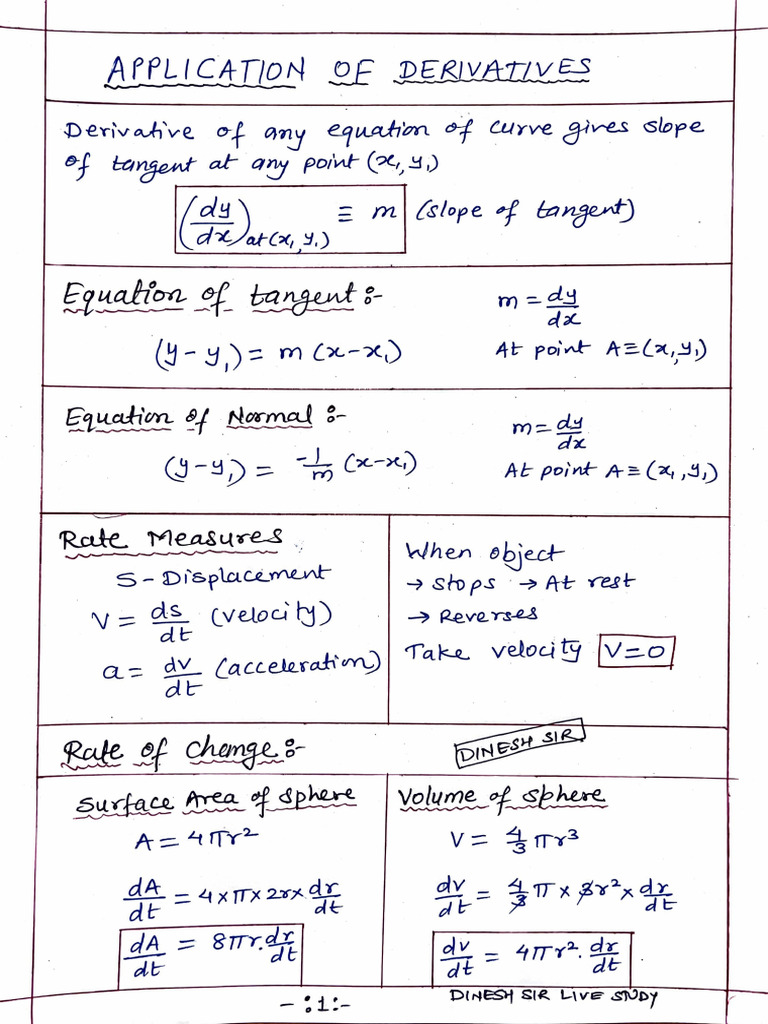 APPLICATION OF DERIVATIVES
Derivative of any equation of curve gives slope
of tangent at any point (x₁, y₁)
(dy/dx) at (x₁, y₁) ≡ m (slope of tangent)
Equation of tangent :-
(y - y₁) = m (x - x₁)
m = dy/dx
At point A ≡ (x₁, y₁)
Equation of Normal :-
(y - y₁) = -1/m (x - x₁)
m = dy/dx
At point A ≡ (x₁, y₁)
Rate Measures
S - Displacement
V = ds/dt (velocity)
a = dv/dt (acceleration)
When object
→ stops → At rest
→ Reverses
Take velocity V = 0
Rate of Change :-
DINESH SIR
Surface Area of sphere
A = 4πr²
dA/dt = 4 × π × 2r × dr/dt
dA/dt = 8πr. dr/dt
Volume of sphere
V = 4/3 πr³
dv/dt = 4/3 π × 3r² × dr/dt
dv/dt = 4πr². dr/dt
- :1: -
DINESH SIR LIVE STUDY